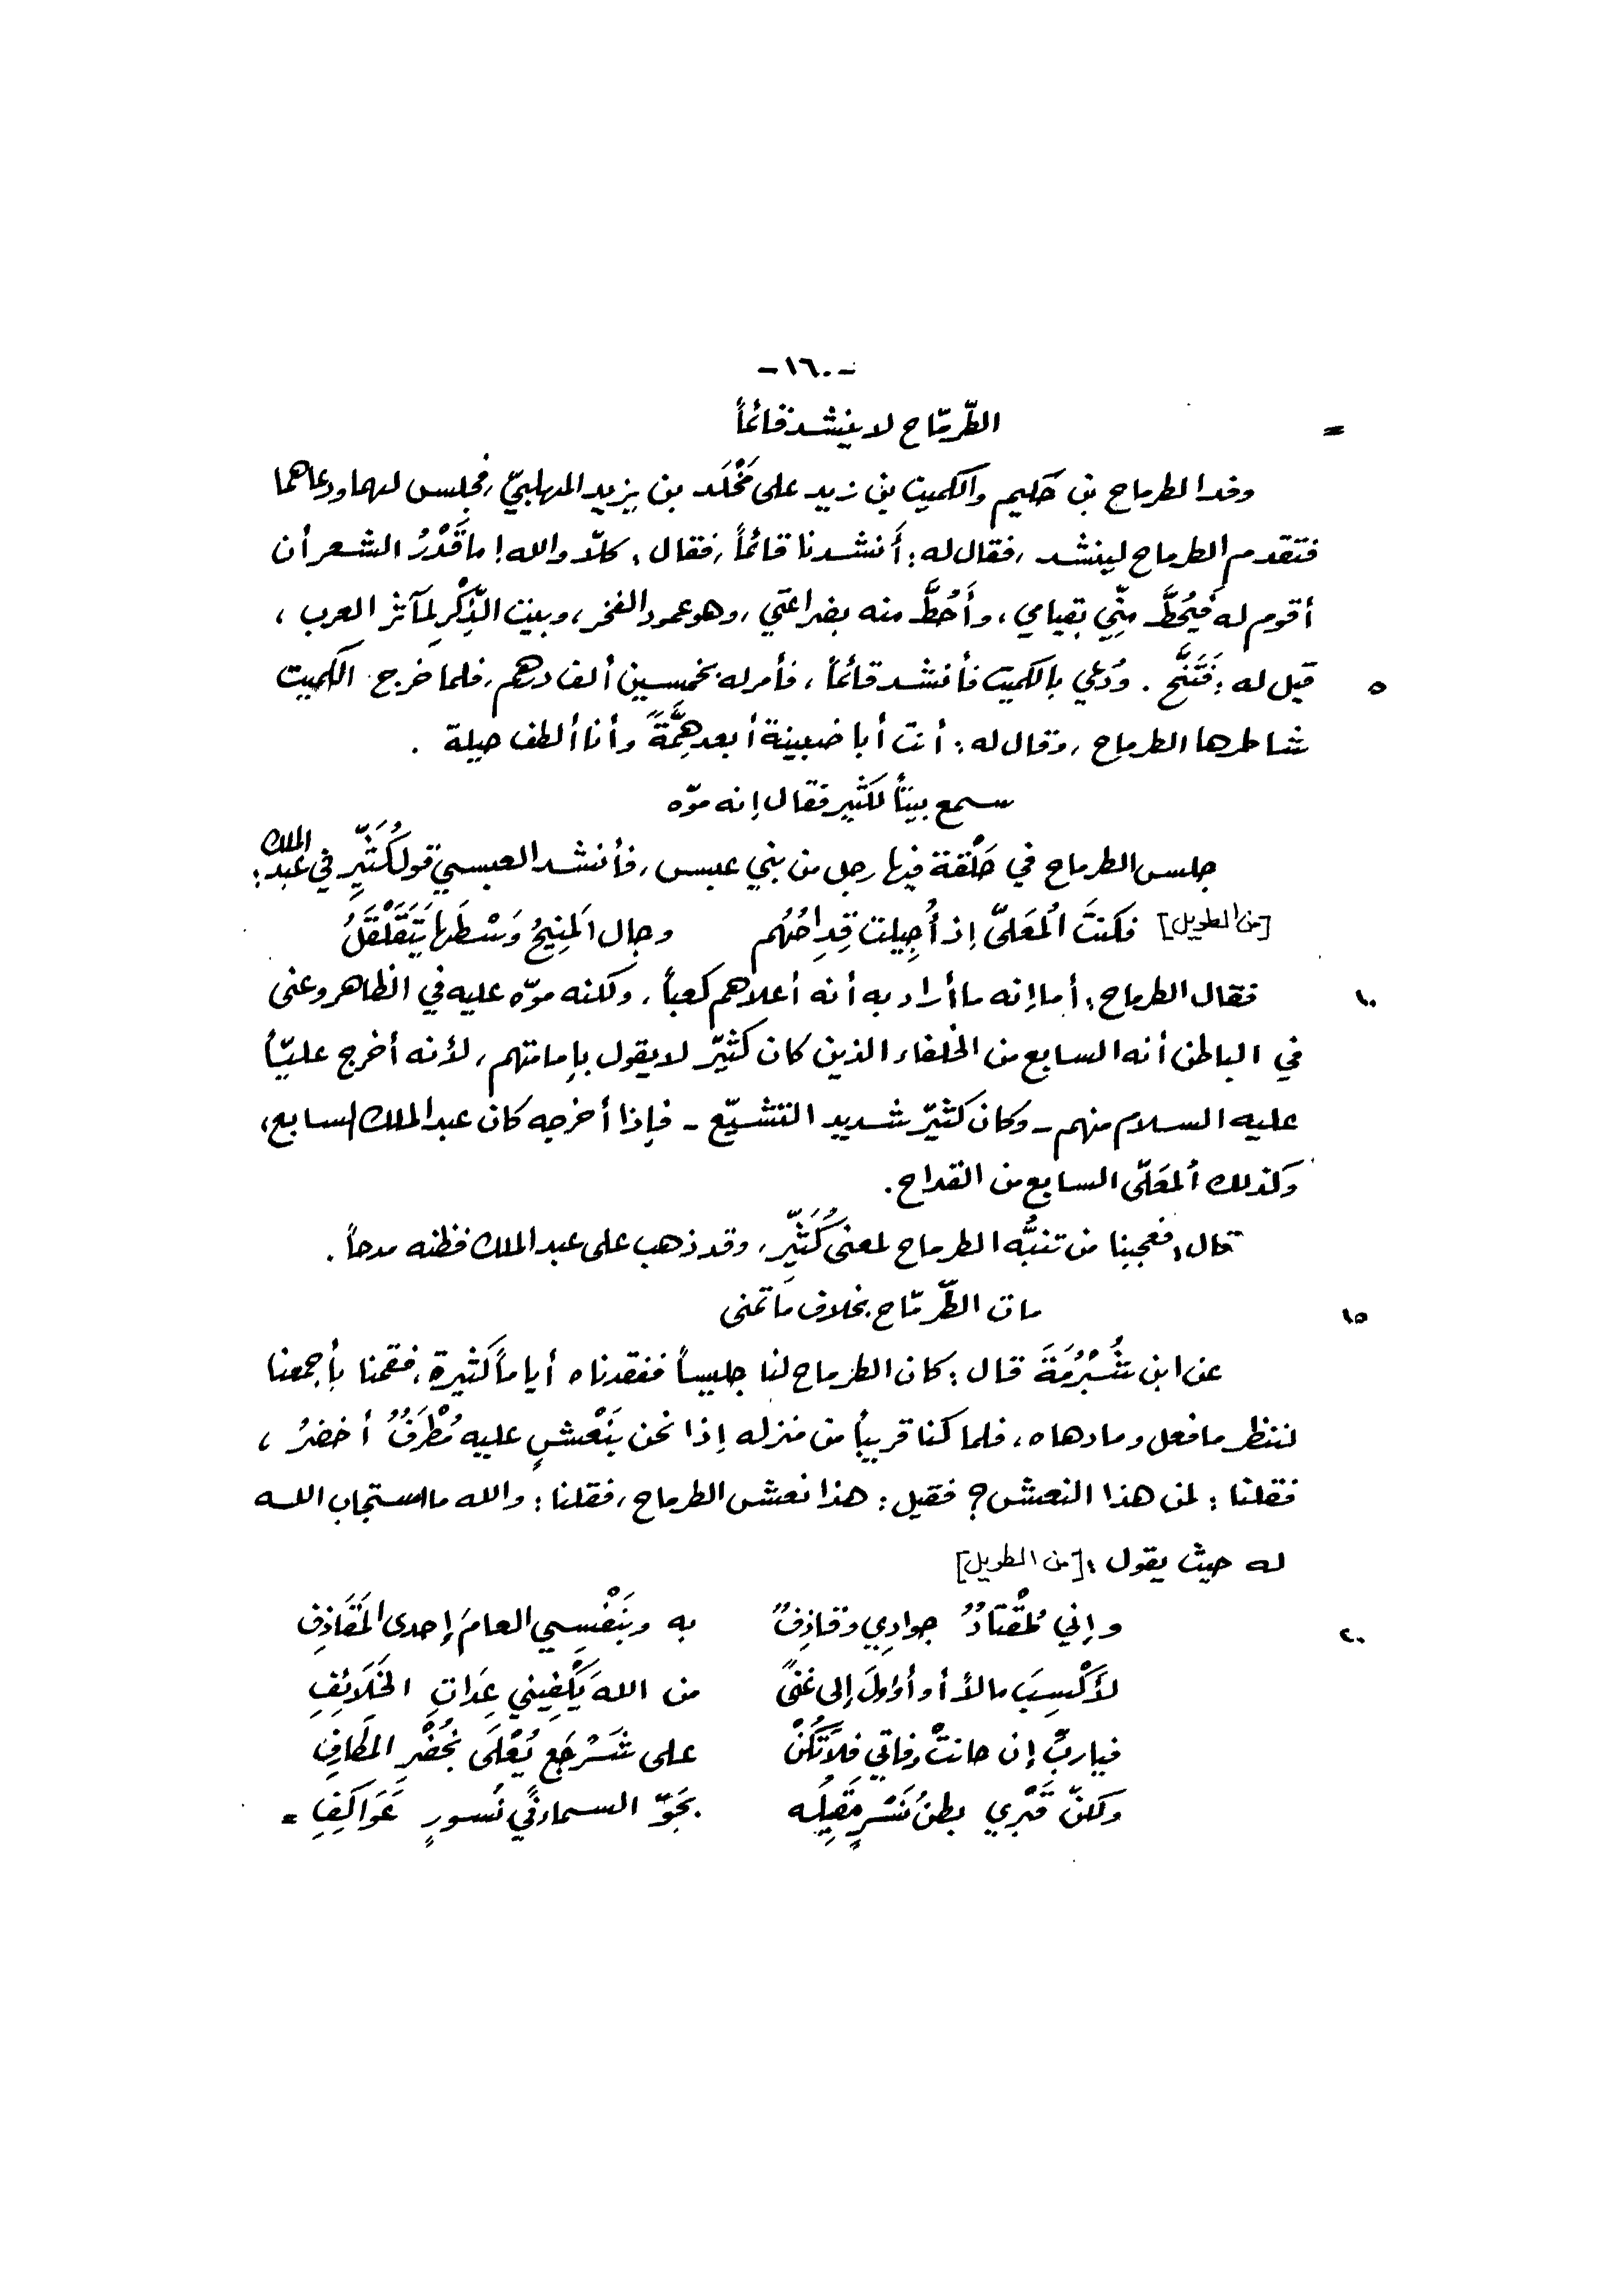 -١٦٠-
= الطّرمّاح لا ينشد قائماً
وفد الطرماح بن حَكيم والكميت بن زيد على مَخْلَد بن يزيد المهلبيّ، فجلس لهما ودعاهما
فتقدم الطرماح لينشد، فقال له: أَنشدنا قائماً، فقال: كلّا والله! ما قَدْرُ الشعر أن
أقوم له فيُحطَّ مِنّي بقيامي، وأَحُطَّ منه بضراعتي، وهو عمود الفخر، وبيت الذِّكْر لمآثر العرب،
٥ قيل له: فَتَنَحَّ. ودُعي بالكميت فأنشد قائماً، فأمر له بخمسين ألف درهم، فلما خرج الكميت
شاطرها الطرماح، وقال له: أنت أبا ضبينة أبعد هِمَّةً وأنا ألطف حيلة.
سمع بيتاً لكثير فقال إنه موّه
جلس الطرماح في حَلْقة فيها رجل من بني عبس، فأنشد العبسيّ قول كُثَيِّرٍ في عبد الملك:
[من الطويل] فكنتَ المُعَلىّ إذ أُجِيلت قِداحُهُم وجال المَنِيحُ وَسْطَها يَتَقَلْقَلُ
١٠ فقال الطرماح: أما إنه ما أراد به أنه أعلاهم كعباً، ولكنه موّه عليه في الظاهر وعنى
في الباطن أنه السابع من الخلفاء الذين كان كثيّر لا يقول بإمامتهم، لأنه أخرج عليّاً
عليه السلام منهم - وكان كثيّر شديد التشيّع - فإذا أخرجه كان عبد الملك السابع،
وكذلك المعَلّى السابع من القداح.
قال: فعجبنا من تنبُّه الطرماح لمعنى كُثَيِّر، وقد ذهب على عبد الملك فظنه مدحاً.
١٥ مات الطّرمّاح بخلاف ما تمنى
عن ابن شُبْرُمَةَ قال: كان الطرماح لنا جليساً ففقدناه أياماً كثيرة، فقمنا بأجمعنا
لننظر ما فعل وما دهاه، فلما كنا قريباً من منزله إذا نحن بنَعْشٍ عليه مُطْرَفٌ أخضرُ،
فقلنا: لمن هذا النعش؟ فقيل: هذا نعش الطرماح، فقلنا: والله ما استجاب الله
له حيث يقول: [من الطويل]
٢٠ وإني لمُقْتادٌ جوادِي وقاذِفٌ به وبنَفْسِي العامَ إحدى المَقَاذِفِ
لأَكْسِبَ مالاً أو أؤولَ إلى غنىً من الله يَكْفِيني عِدَاتِ الخَلَائِفِ
فيا ربِّ إن حانتْ وفاتي فلا تَكُنْ على شَرْجَعٍ يُعْلَى بخُضْرِ المَطَارفِ
ولكنّ قَبْري بطنُ نَسْرٍ مَقِيلُه بجَوّ السماء في نُسورٍ عَوَاكِفِ =